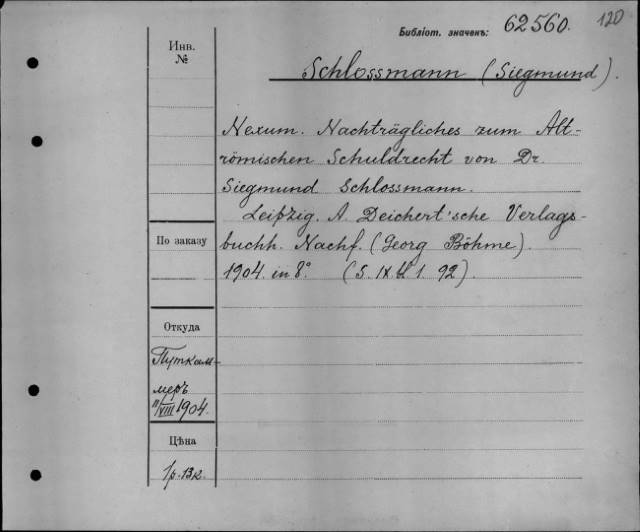 Библіот. значекъ: 62560. 120
Инв.
№
Schlossmann (Siegmund).
Nexum. Nachträgliches zum Alt-
römischen Schuldrecht von Dr.
Siegmund Schlossmann.
Leipzig. A. Deichert'sche Verlags-
buchh. Nachf. (Georg Böhme).
1904. in 8° (S. IX. 1. 92).
По заказу
Откуда
Путкам-
меръ
11/VIII 1904.
Цѣна
1р. 13к.